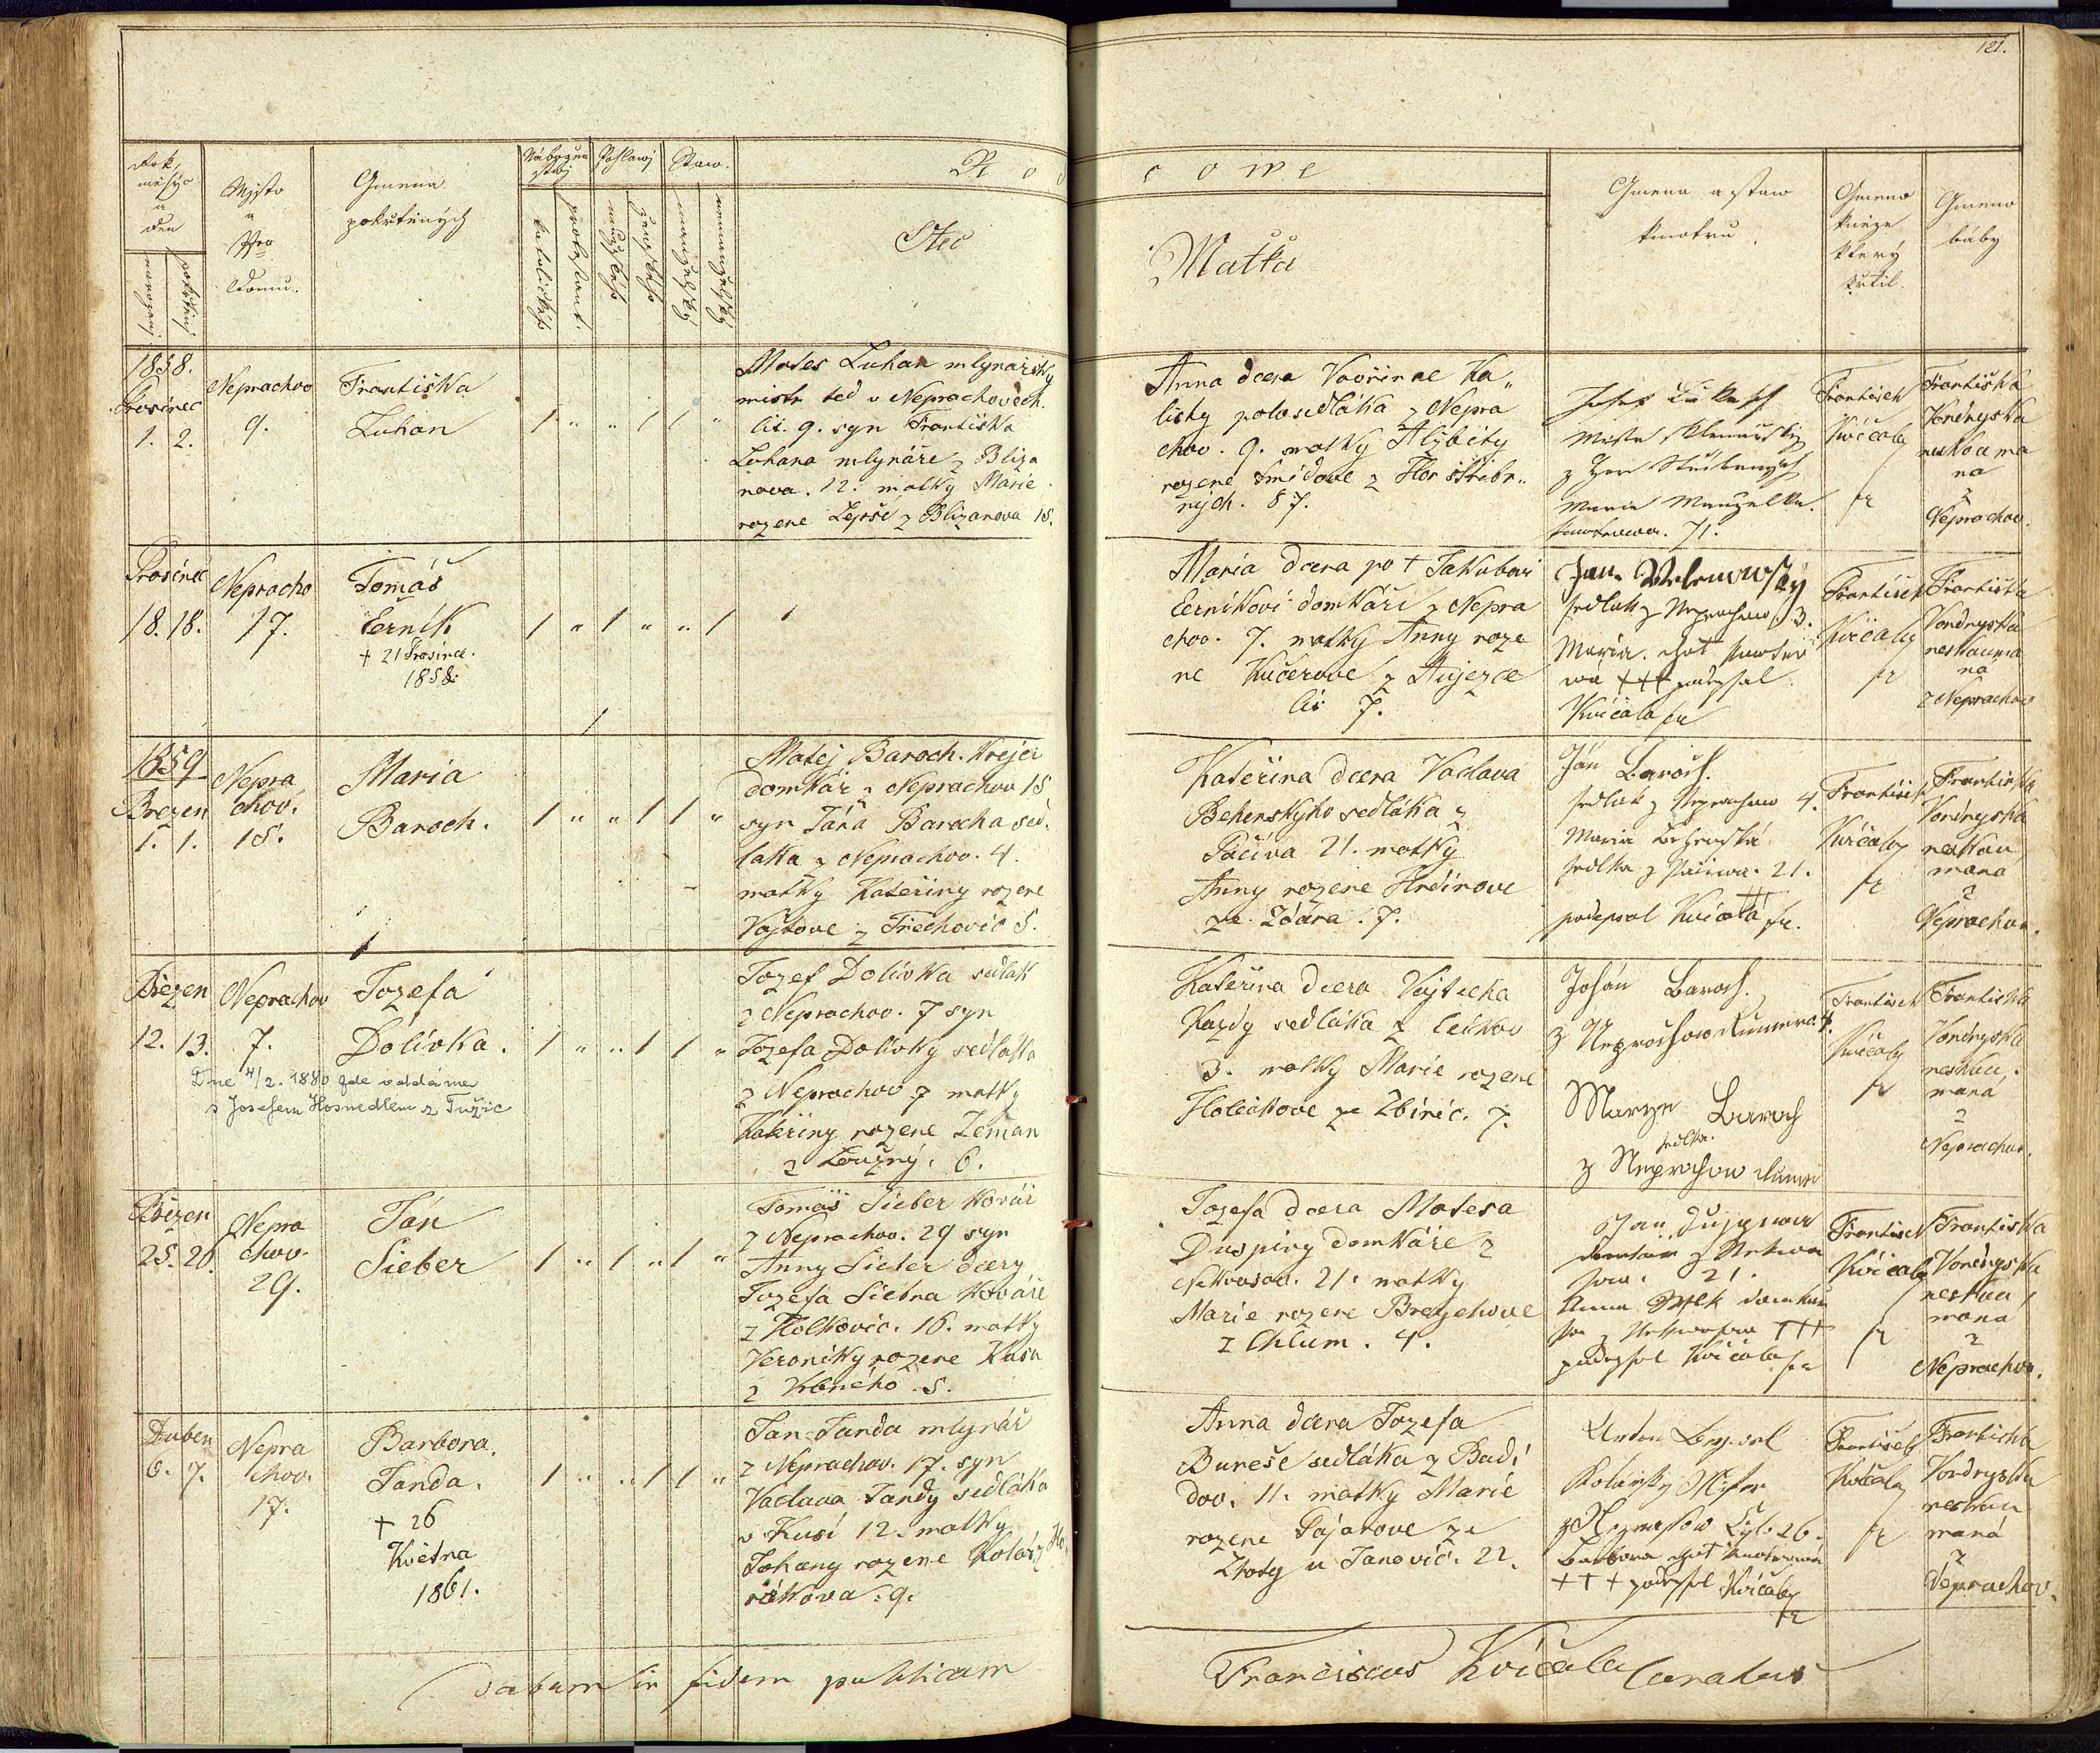 121.
Rok, měsýc a den
narozenj
pokřtěnj
Mjsto a Nro domu.
Gmena pokřtěných
Náboženstwj
katolické
protestant.
Pohlawj
mužské
ženské
Staw.
manželský
nemanželský
Rodičowé
Otec
Matka
Gmena a staw kmotrů
Gmeno kněze který křtil.
Gmeno báby
1858.
Prosinec
1. 2.
Neprachov
9.
Františka
Luhan
Mates Luhan mlynářský
mistr ted v Neprachovech.
čis. 9. syn Františka
Luhana mlynáře z Bliza
nova. 12. matky Marie
rozene Lepší z Blizanova 15.
Anna dcera Vavřince Ka„
listy polosedláka z Nepra
chov. 9. matky Alžběty
rozene Šmídove z Hor Střibr„
ných. 87.
z Hor Stříbrných
Maria Manzelka
kmotrowa. 71.
Frantisek
Kvíčaly
fr
Františka
Vondryska
neskouma
na
z
Neprachov.
Prosinec
18. 18.
Nepracho
17.
Tomáš
Černík
+ 21 Prosince.
1858.
Maria dcera po + Jakubovi
Černíkovi domkáři z Nepra
chov. 7. matky Anny roze
ne Kučerove z Aujezce
čis 7.
Jan Welenowsky
sedlak z Neprachow. 3.
Maria. chot kmotro
wa +++ podepsal
Kvičala fr
Frantisek
Kvíčaly
fr
Františka
Vondryska
neskouma
na
z Neprachov
1859
Brezen
1. 1.
Nepra
chov.
15.
Maria
Baroch.
Matej Baroch. Krejci
domkár z Neprachov 15
syn Jána Barocha sed.
laka z Neprachov. 4.
matky Kateřiny rozene
Vojtove z Třechovic 5.
Kateřina dcera Vaclava
Behenskyho sedláka z
Pačiva 21. matky
Anny rozene Hrdinove
ze Zdára. 7.
Ján Baroch.
sedlak z Neprachow 4.
Maria
sedlka z Pačiwa. 21.
podepsal Kvičala fr.
Frantisek
Kvíčaly
fr
Františka
Vondryska
neskou
mana
z
Neprachov.
Březen
12. 13.
Neprachov
7.
Jozefa
Dolívka.
Dne 4/2. 1880 zde oddána
s Josefem Hosnedlem z Tužic
Jozef Dolívka sedlak
z Neprachov. 7 syn
Jozefa Dolívky sedlaka
z Neprachov 7 matky
Kateřiny rozene Zeman
z Loužný. 6.
Kateřina dcera Vojtecha
Kazdy sedláka z
3. matky Marie rozene
Holeckove ze Zbiric. 7.
Johán Baroch.
z Neprochow 4.
Marye Baroch
sedlka.
z Neprochow
Frantisek
Kvíčaly
fr
Františka
Vondryska
neskou.
maná
z
Neprachov.
Březen
25. 26.
Nepra
chov.
29.
Ján
Sieber
Tomáš Sieber Kovář
z Neprachov. 29 syn
Anny Sieber dcery
Jozefa Siebra Kováře
z Holkovic. 16. matky
Veroniky rozene Kasa
z Vrbného. 5.
Jozefa dcera Matesa
Duspivy domkáře z
Nekvasov. 21. matky
Marie rozene Brejchove
z Chlum. 4.
Jan
domkář z Nekwa
sow. 21.
Anna
z Nekwasow +++
podepsal Kvíčala fr
Frantisek
Kvíčaly
fr
Františka
Vondryska
neskou
mana
z
Neprachov.
Duben
6. 7.
Nepra
chov.
17.
Barbora.
Janda.
+ 26
Května
1861.
Jan Janda mlynář
z Neprachov. 17. syn
Vaclava Jandy sedláka
v Kusí 12. matky
Johany rozene Kolář z Ho„
řákova. 9.
Anna dcera Jozefa
Bureše sedláka z Badi
dov. 11. matky Marie
rozene Pajarove ze
Zhoty u Janovic. 22.
z Neprachow 26.
Barbora chot kmotrowa
+++ podepsal Kvíčaly
fr
Frantisek
Kvíčaly
fr
Františka
Vondryska
neskou
maná
z
Neprachov.
Datum in fidem publicam
Franciscus Kvíčala Curatus